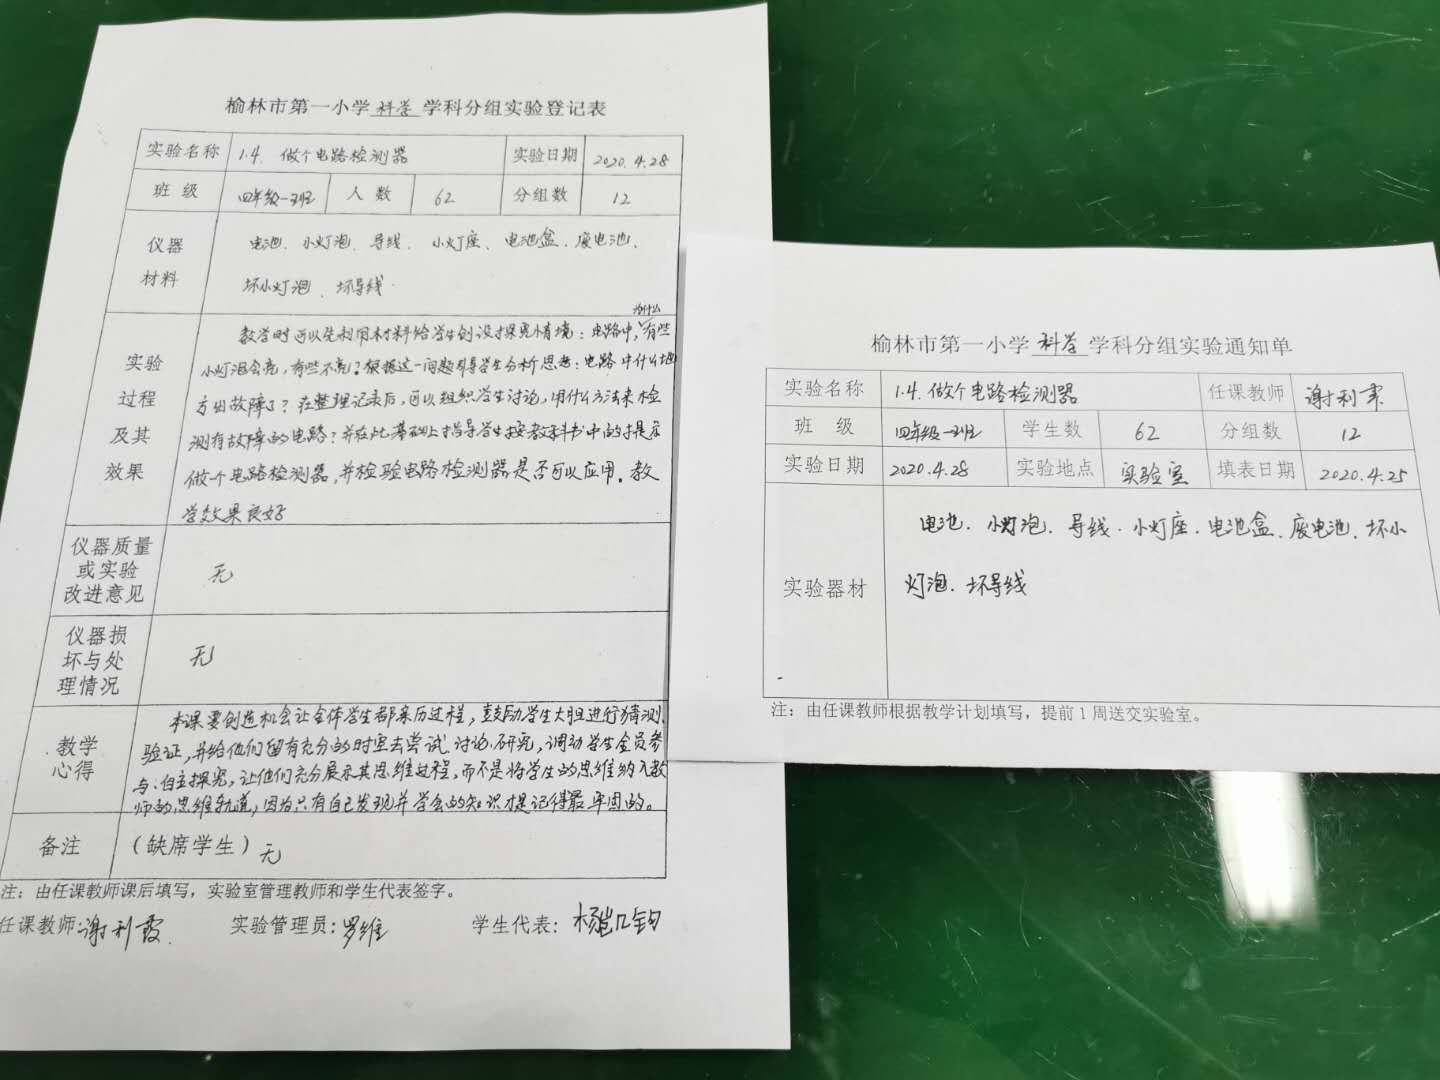 榆林市第一小学 科学 学科分组实验登记表
实验名称 1.4. 做个电路检测器 实验日期 2020.4.28
班 级 四年级一班 人 数 62 分组数 12
仪器材料 电池、小灯泡、导线、小灯座、电池盒、废电池、
坏小灯泡、坏导线.
实验过程及其效果
为什么
教学时可以先利用材料给学生创设探究情境:电路中,有些
小灯泡会亮,有些不亮?根据这一问题引导学生分析思考:电路中什么地
方出故障了?在整理记录后,可以组织学生讨论,用什么方法来检
测有故障的电路?并在此基础上指导学生按教科书中的提示
做个电路检测器,并检验电路检测器是否可以应用。教
学效果良好
仪器质量或实验改进意见 无
仪器损坏与处理情况 无
教学心得
本课要创造机会让全体学生都亲历过程,鼓励学生大胆进行猜测、
验证,并给他们留有充分的时空去尝试、讨论、研究,调动学生全员参
与、自主探究,让他们充分展示其思维过程,而不是将学生的思维纳入教
师的思维轨道,因为只有自己发现并学会的知识才是记得最牢固的。
备注 (缺席学生)无
注:由任课教师课后填写,实验室管理教师和学生代表签字。
任课教师:谢利霞 实验管理员:罗维 学生代表:
榆林市第一小学 科学 学科分组实验通知单
实验名称 1.4.做个电路检测器 任课教师 谢利霞
班 级 四年级一班 学生数 62 分组数 12
实验日期 2020.4.28 实验地点 实验室 填表日期 2020.4.25
实验器材 电池、小灯泡、导线、小灯座、电池盒、废电池、坏小
灯泡、坏导线
注:由任课教师根据教学计划填写,提前1周送交实验室。